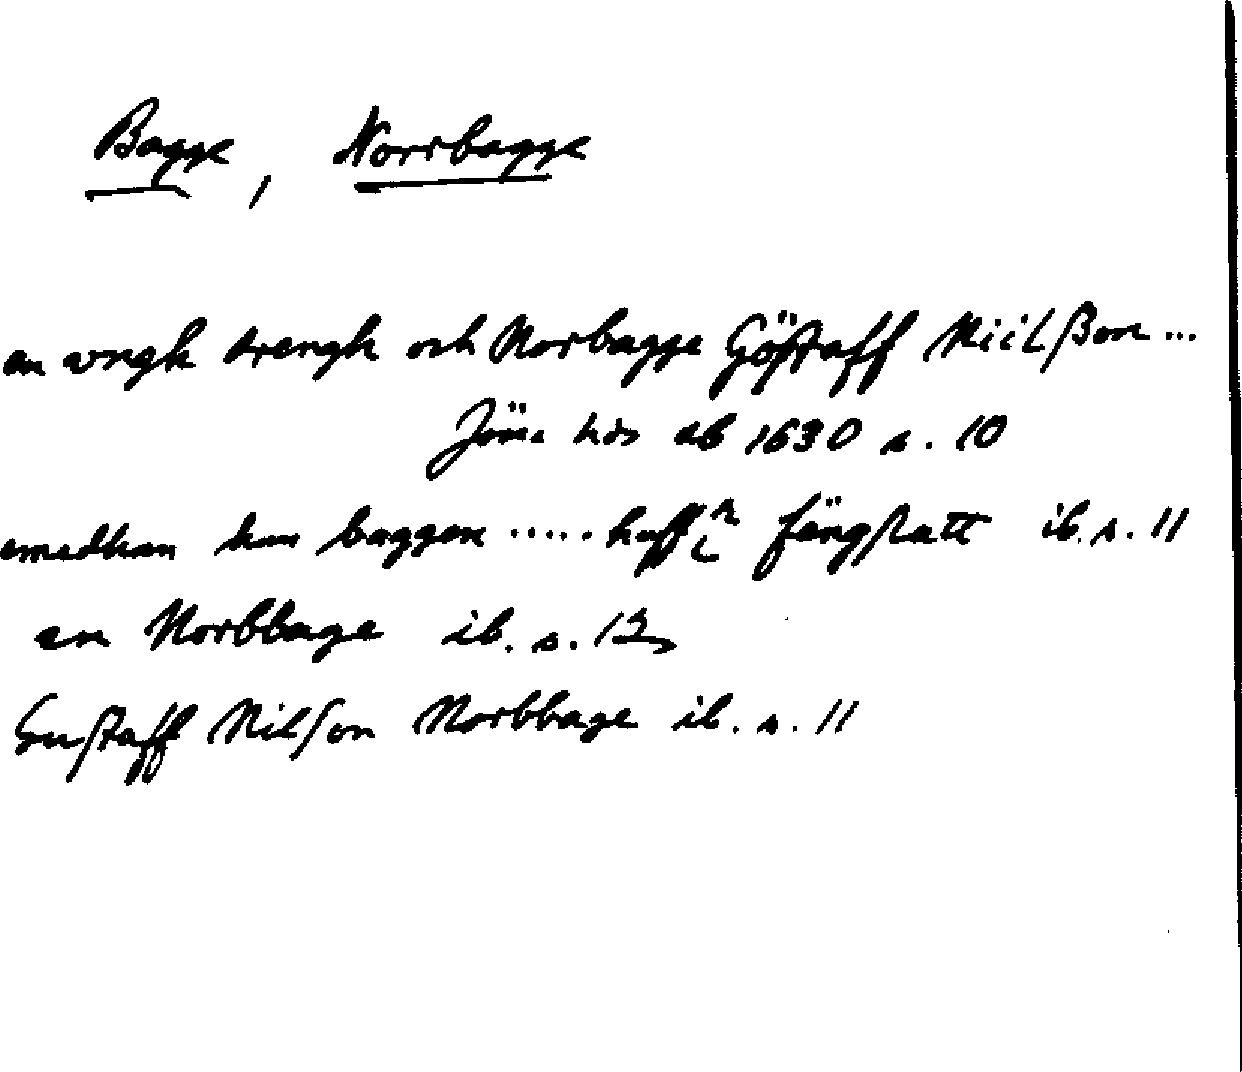 Bagge, Norrbagge
en vngk drengk och Norbagge Göstaff Niilßon ...
Jöns hds db 1630 s. 10
emedhan han baggen ..... haff fängslatt ib. s. 11
en Norbbage ib. s. 12
Gustaff Nilson Norbbage ib. s. 11